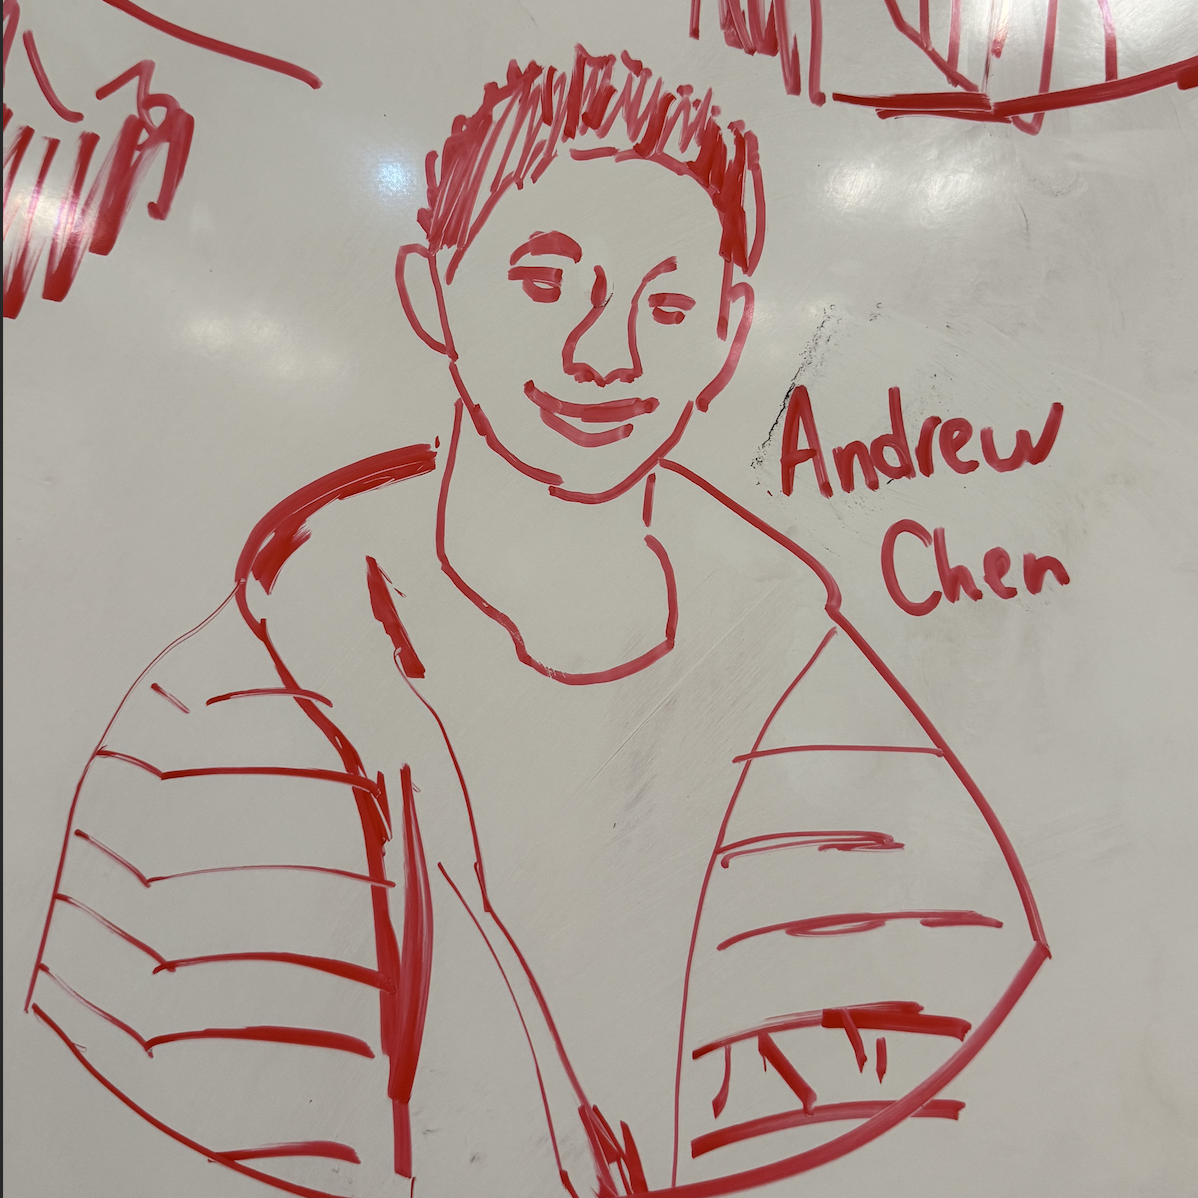 Andrew
Chen